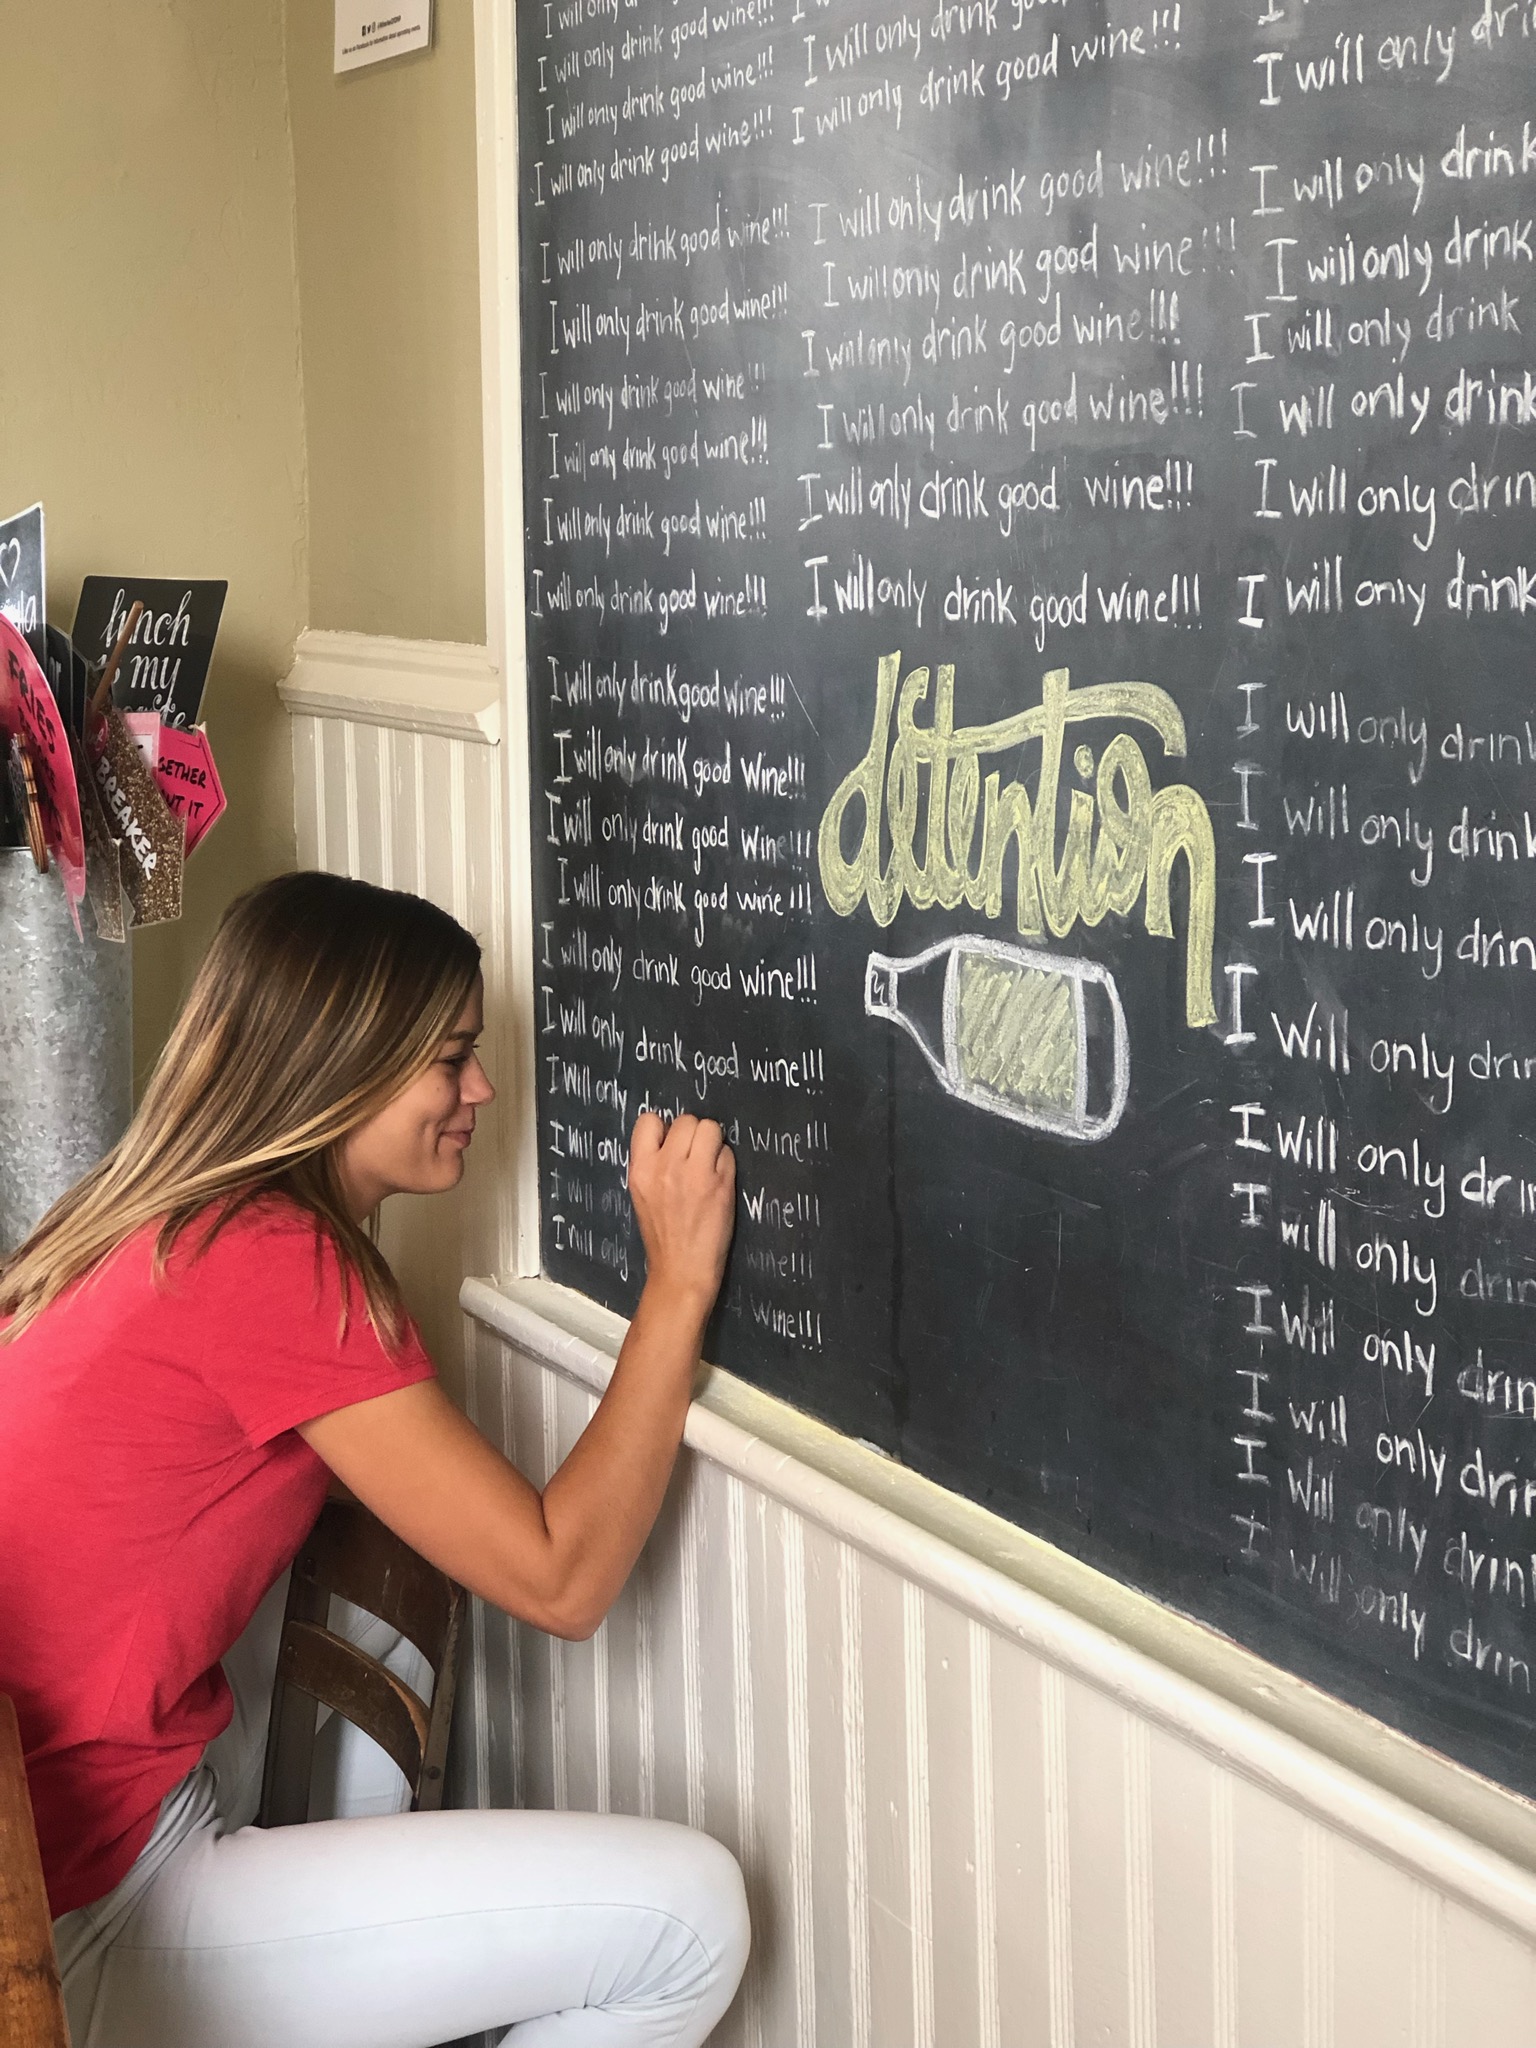 I will only good wine!!!
I will only drink good wine!!!
I will only drink good wine!!!
I will only drink good wine!!!
I will only drink good wine!!!
I will only drink good wine!!!
I will only drink good wine!!!
I will only drink good wine!!!
I will only drink good wine!!!
I will only drink good wine!!!
I will only drink good wine!!!
I will only drink good Wine!!!
I will only drink good wine!!!
I will only drink good wine!!!
I will only drink good wine!!!
I will only drink good wine!!!
I Will only drink wine!!!
I Will only Wine!!!
I will only wine!!!
I will only Wine!!!
I will only drink good
I will only drink good wine!!!
I will only drink good wine!!!
I will only drink good wine!!!
I will only drink good wine!!!
I will only drink good wine!!!
I will only drink good wine!!!
I will only drink good wine!!!
detention
I will only dri
I will only drink
I will only drink
I will only drink
I will only drink
I will only drin
I will only drink
I will only drink
I will only drink
I will only drin
I Will only drin
I Will only drin
I will only drin
I Will only drin
I will only drin
I Will only drink
I will only drin
lunch
my
FRIES
BREAKER
GETHER
IT